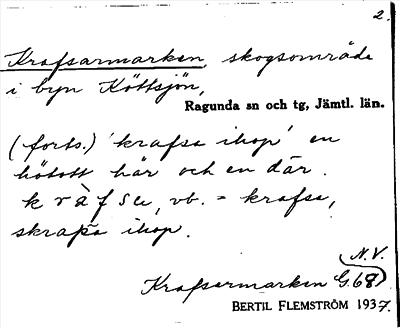 2.
Krafsarmarken, skogsområde
i byn Köttsjön,
Ragunda sn och tg, Jämtl. län.
(forts.) 'krafsa ihop' en
hötott här och en där.
kràfsa, vb. = krafsa,
skrapa ihop.
(N.V.
Krafsarmarken G.68)
BERTIL FLEMSTRÖM 1937.